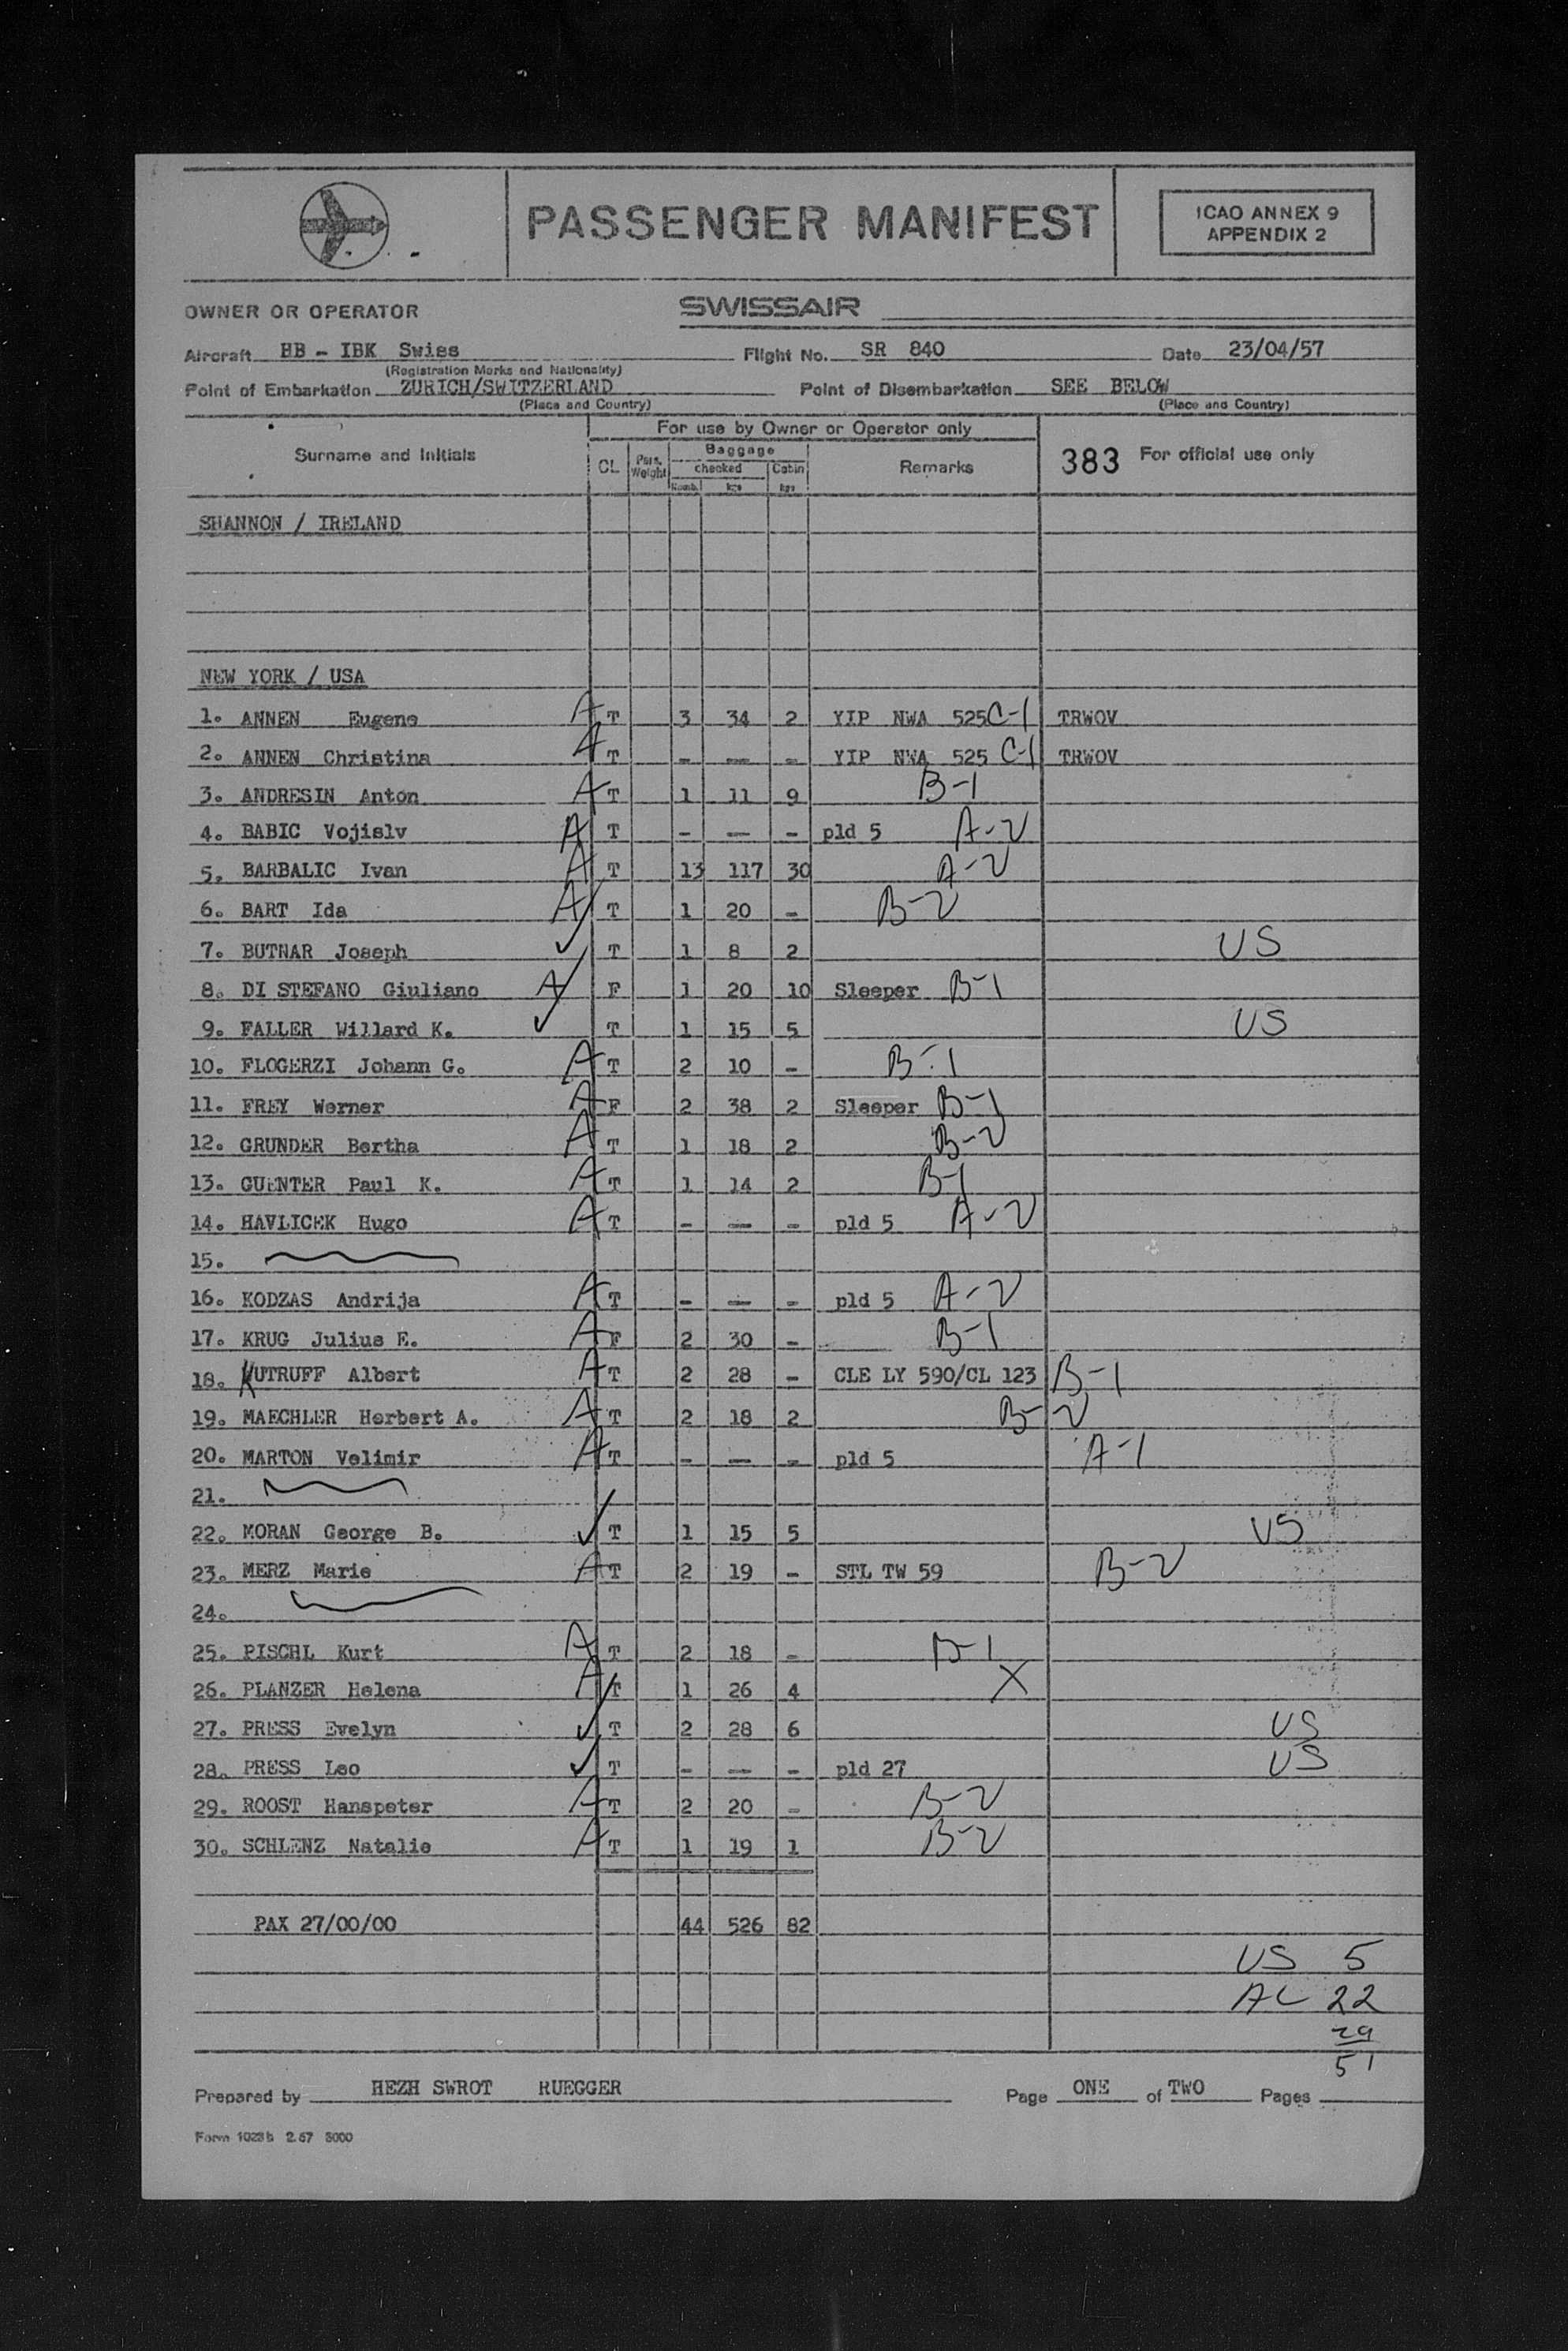 PASSENGER MANIFEST
ICAO ANNEX 9
APPENDIX 2
OWNER OR OPERATOR SWISSAIR
Aircraft HB - IBK Swiss Flight No. SR 840 Date 23/04/57
(Registration Marks and Nationality)
Point of Embarkation ZURICH/SWITZERLAND Point of Disembarkation SEE BELOW
(Place and Country) (Place and Country)
For use by Owner or Operator only
Surname and Initials CL Pass. Weight Baggage checked Numb. kgs Cabin kgs Remarks 383 For official use only
SHANNON / IRELAND
NEW YORK / USA
1. ANNEN Eugene A T 3 34 2 YIP NWA 525 C-1 TRWOV
2. ANNEN Christina A T - - - YIP NWA 525 C-1 TRWOV
3. ANDRESIN Anton A T 1 11 9 B-1
4. BABIC Vojislv A T - - - pld 5 A-2
5. BARBALIC Ivan A T 13 117 30 A-2
6. BART Ida A T 1 20 - B-2
7. BUTNAR Joseph ✓ T 1 8 2 US
8. DI STEFANO Giuliano A F 1 20 10 Sleeper B-1
9. FALLER Willard K. ✓ T 1 15 5 US
10. FLOGERZI Johann G. A T 2 10 - B-1
11. FREY Werner A F 2 38 2 Sleeper B-1
12. GRUNDER Bertha A T 1 18 2 B-2
13. GUENTER Paul K. A T 1 14 2 B-1
14. HAVLICEK Hugo A T - - - pld 5 A-2
15.
16. KODZAS Andrija A T - - - pld 5 A-2
17. KRUG Julius E. A F 2 30 - B-1
18. KUTRUFF Albert A T 2 28 - CLE LY 590/CL 123 B-1
19. MAECHLER Herbert A. A T 2 18 2 B-2
20. MARTON Velimir A T - - - pld 5 A-1
21.
22. MORAN George B. ✓ T 1 15 5 US
23. MERZ Marie A T 2 19 - STL TW 59 B-2
24.
25. PISCHL Kurt A T 2 18 - B-1
26. PLANZER Helena A T 1 26 4 X
27. PRESS Evelyn ✓ T 2 28 6 US
28. PRESS Leo ✓ T - - - pld 27 US
29. ROOST Hanspeter A T 2 20 - B-2
30. SCHLENZ Natalie A T 1 19 1 B-2
PAX 27/00/00 44 526 82
US 5
AL 22
29
51
Prepared by HEZH SWROT RUEGGER Page ONE of TWO Pages
Form 1023b 2.57 3000